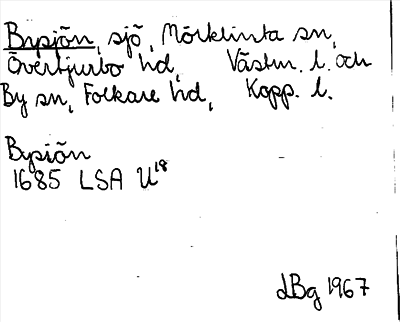 Bysjön, sjö, Mörklinta sn,
Övertjurbo hd, Västm. l. och
By sn, Folkare hd, Kopp. l.
Bysiön
1685 LSA U18
dBg 1967